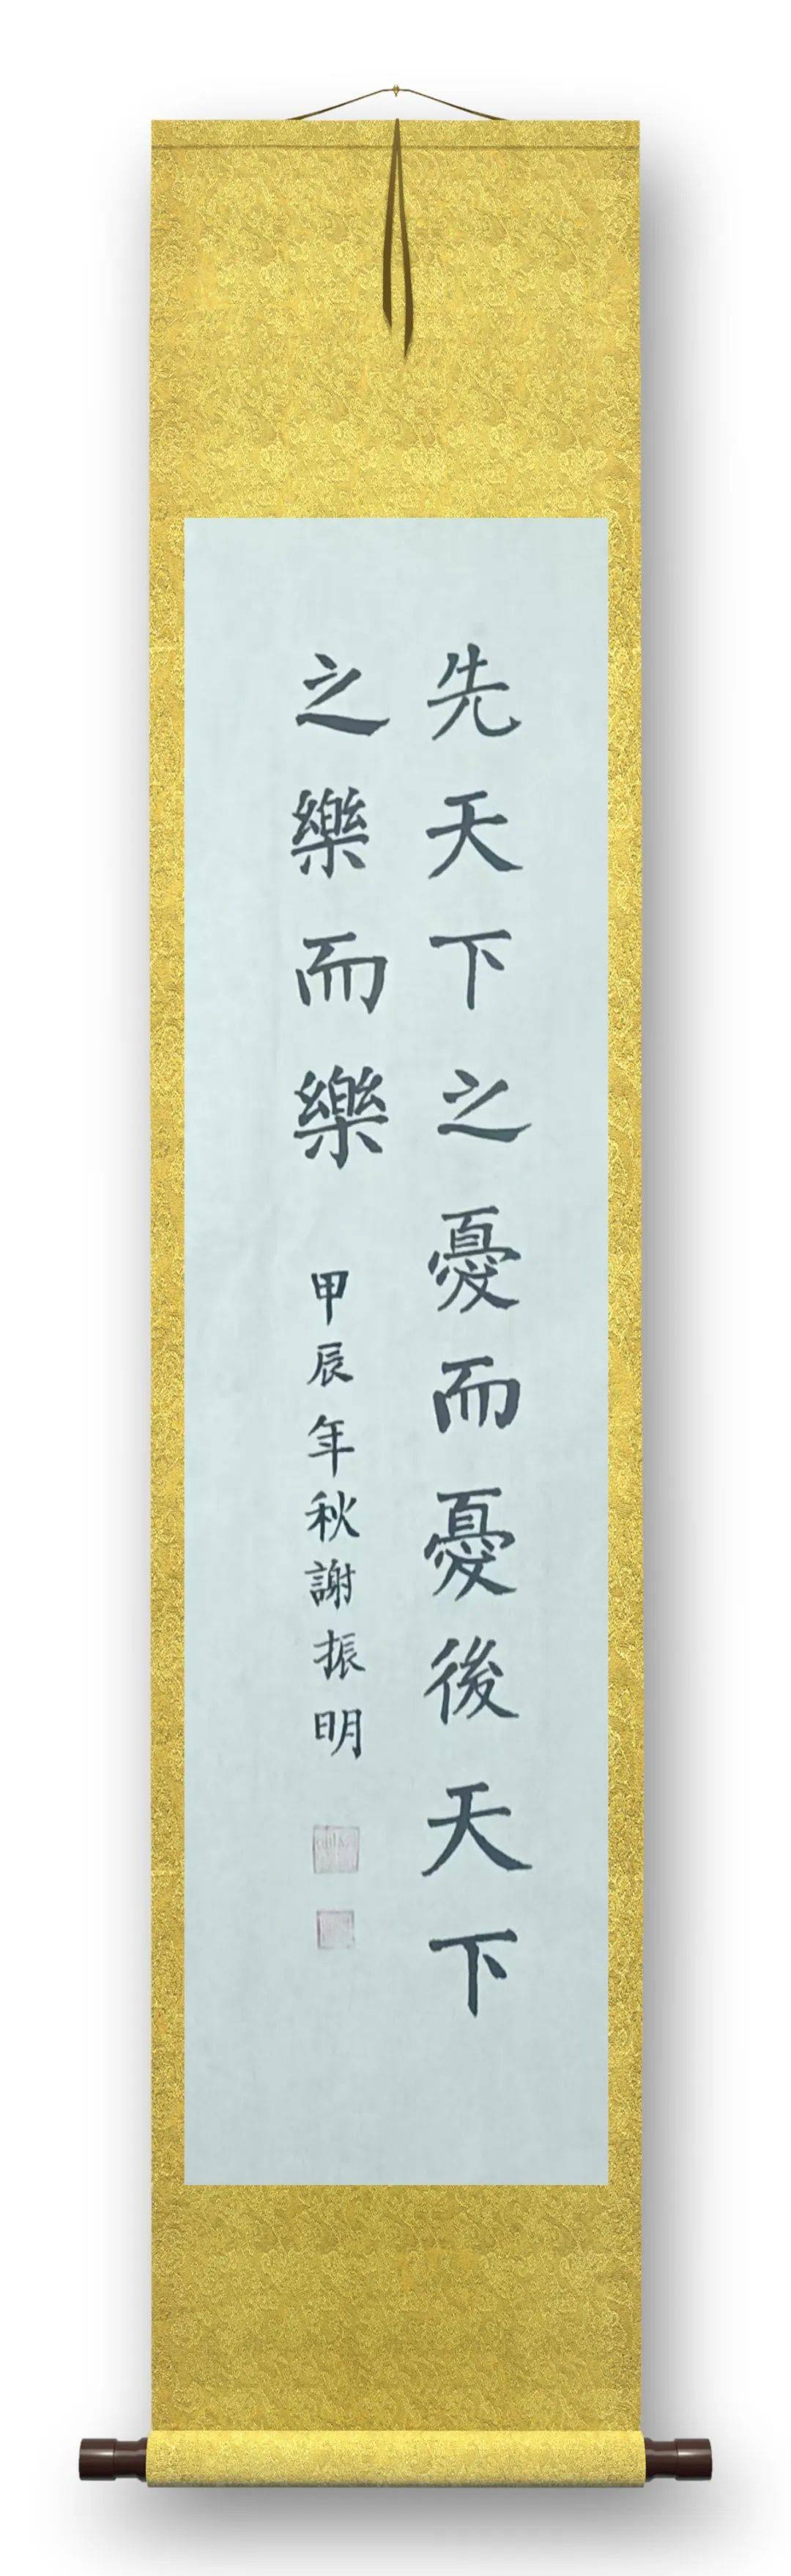 先天下之憂而憂後天下
之樂而樂 甲辰年秋謝振明